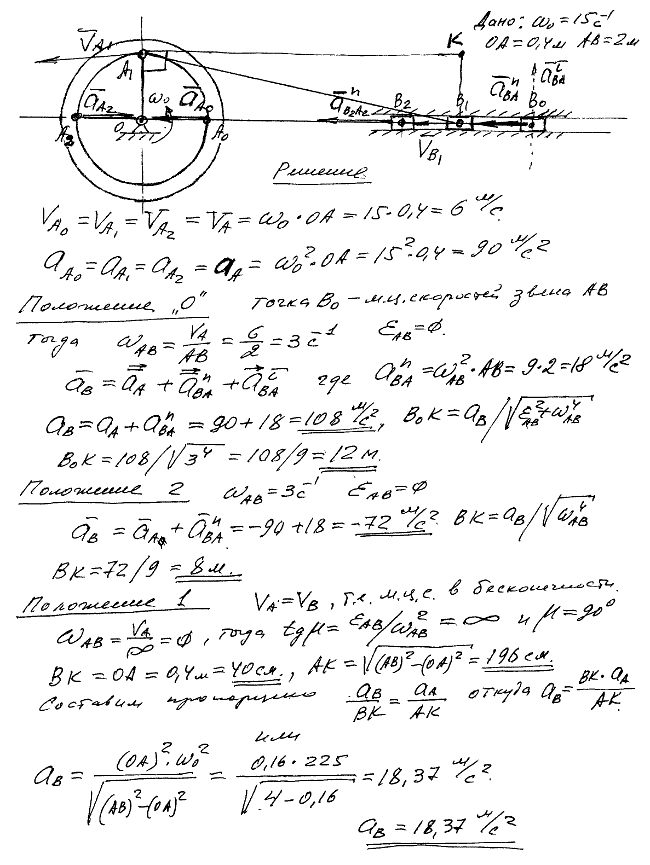 Дано: ω₀ = 15 с⁻¹
OA = 0,4 м AB = 2 м
V̄A₁
K
A₁
āA₂
ω₀
āA₀
A₂
O
A₀
āⁿB₂A₂
B₂
B₁
āⁿBA
āᵗBA
B₀
V̄B₁
Решение
VA₀ = VA₁ = V̄A₂ = V̄A = ω₀·OA = 15·0,4 = 6 м/с
aA₀ = aA₁ = aA₂ = aA = ω₀²·OA = 15²·0,4 = 90 м/с²
Положение „0" точка B₀ – м.ц. скоростей звена AB
тогда ωAB = VA/AB = 6/2 = 3 с⁻¹ εAB = 0.
āB = āA + āⁿBA + āᵗBA где aⁿBA = ω²AB·AB = 9·2 = 18 м/с²
aB = aA + aⁿBA = 90 + 18 = 108 м/с², B₀K = aB/√(ε²AB + ω⁴AB)
B₀K = 108/√3⁴ = 108/9 = 12 м.
Положение 2 ωAB = 3 с⁻¹ εAB = 0
āB = āA + āⁿBA = –90 + 18 = –72 м/с² BK = aB/√ω⁴AB
BK = 72/9 = 8 м.
Положение 1 VA = VB, т.е. м.ц.с. в бесконечности.
ωAB = VA/∞ = 0, тогда tgμ = εAB/ω²AB = ∞ и μ = 90°
BK = OA = 0,4 м = 40 см., AK = √((AB)² – (OA)²) = 196 см.
Составим пропорцию aB/BK = aA/AK откуда aB = BK·aA/AK
или
aB = (OA)²·ω₀²/√((AB)² – (OA)²) = 0,16·225/√(4 – 0,16) = 18,37 м/с²
aB = 18,37 м/с²